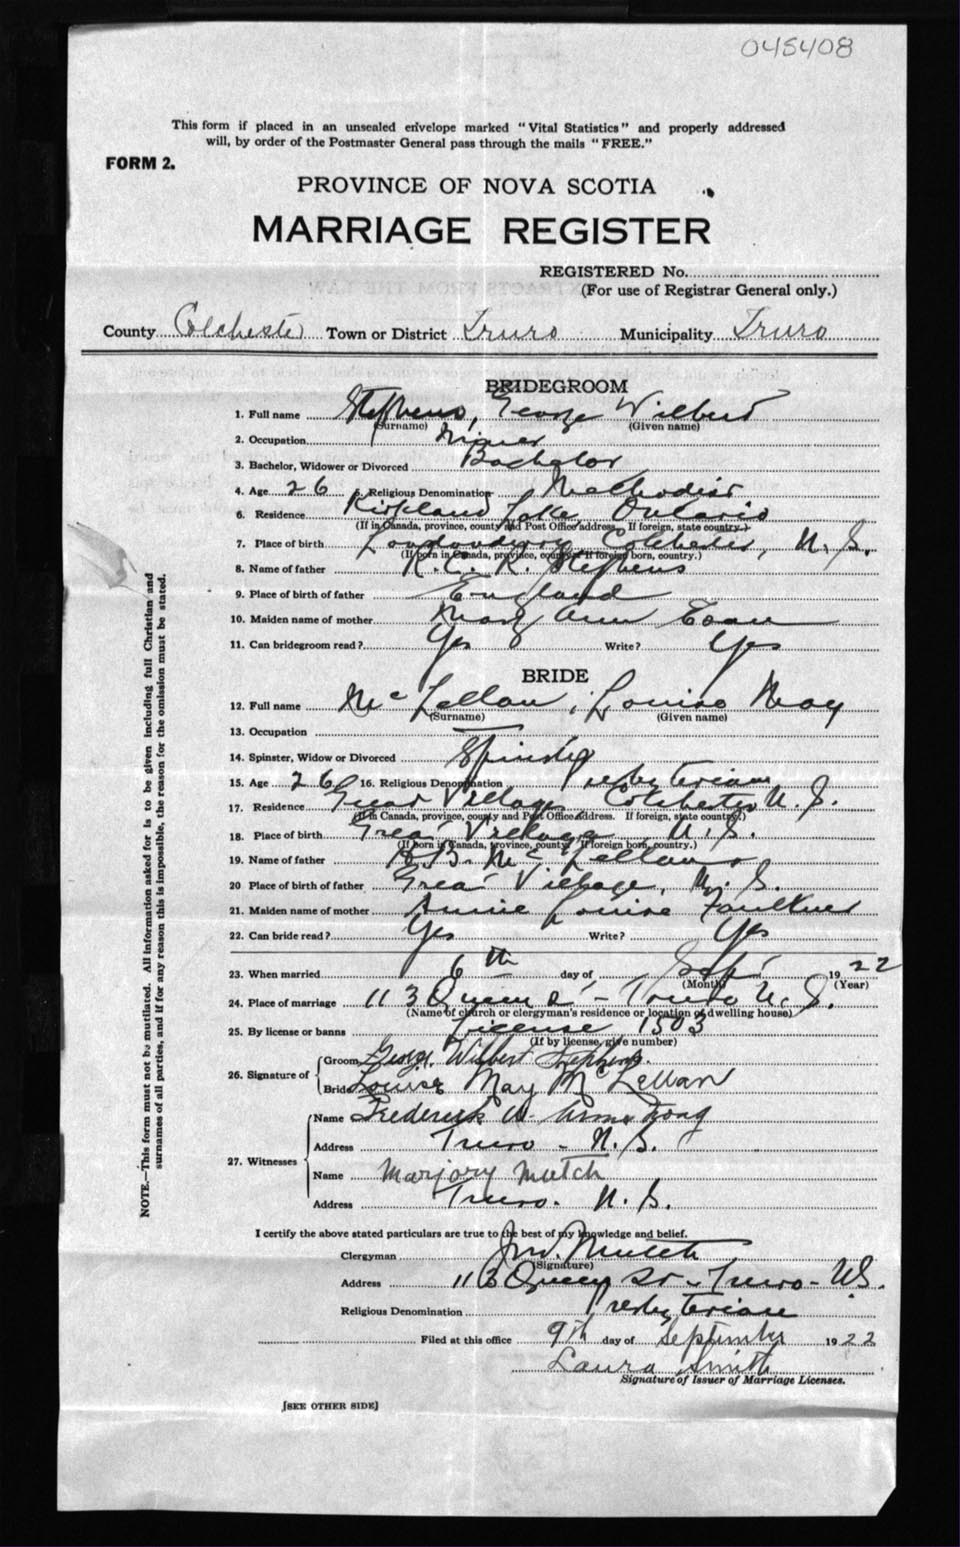 045408
This form if placed in an unsealed envelope marked "Vital Statistics" and properly addressed
will, by order of the Postmaster General pass through the mails "FREE."
FORM 2.
PROVINCE OF NOVA SCOTIA
MARRIAGE REGISTER
REGISTERED No.
(For use of Registrar General only.)
County Colchester Town or District Truro Municipality Truro
BRIDEGROOM
1. Full name Stephens, George Wilbert
(Surname) (Given name)
2. Occupation Miner
3. Bachelor, Widower or Divorced Bachelor
4. Age 26 5. Religious Denomination Methodist
6. Residence Kirkland Lake Ontario
(If in Canada, province, county and Post Office address. If foreign, state country.)
7. Place of birth Londonderry Colchester, N. S.
(If born in Canada, province, county. If foreign born, country.)
8. Name of father R. C. R. Stephens
9. Place of birth of father England
10. Maiden name of mother Mary Ann
11. Can bridegroom read? Yes Write? Yes
BRIDE
12. Full name McLellan, Louise May
(Surname) (Given name)
13. Occupation
14. Spinster, Widow or Divorced Spinster
15. Age 26 16. Religious Denomination Presbyterian
17. Residence Great Village Colchester N. S.
(If in Canada, province, county and Post Office address. If foreign, state country.)
18. Place of birth Great Village N. S.
(If born in Canada, province, county. If foreign born, country.)
19. Name of father B. McLellan
20 Place of birth of father Great Village, N. S.
21. Maiden name of mother Annie Louise Faulkner
22. Can bride read? Yes Write? Yes
23. When married 6th day of Sept 1922
(Month) (Year)
24. Place of marriage 113 Queen St - Truro N. S.
(Name of church or clergyman's residence or location of dwelling house)
25. By license or banns License 1503
(If by license, give number)
26. Signature of Groom George Wilbert Stephens.
Bride Louise May McLellan
27. Witnesses Name Frederick W. Armstrong
Address Truro - N. S.
Name Marjory Mutch
Address Truro. N. S.
I certify the above stated particulars are true to the best of my knowledge and belief.
Clergyman Jno. Mutch
(Signature)
Address 113 Queen St - Truro - N.S.
Religious Denomination Presbyterian
Filed at this office 9th day of September 1922
Laura Smith
Signature of Issuer of Marriage Licenses.
[SEE OTHER SIDE]
NOTE.—This form must not be mutilated. All information asked for is to be given including full Christian and
surnames of all parties, and if for any reason this is impossible, the reason for the omission must be stated.